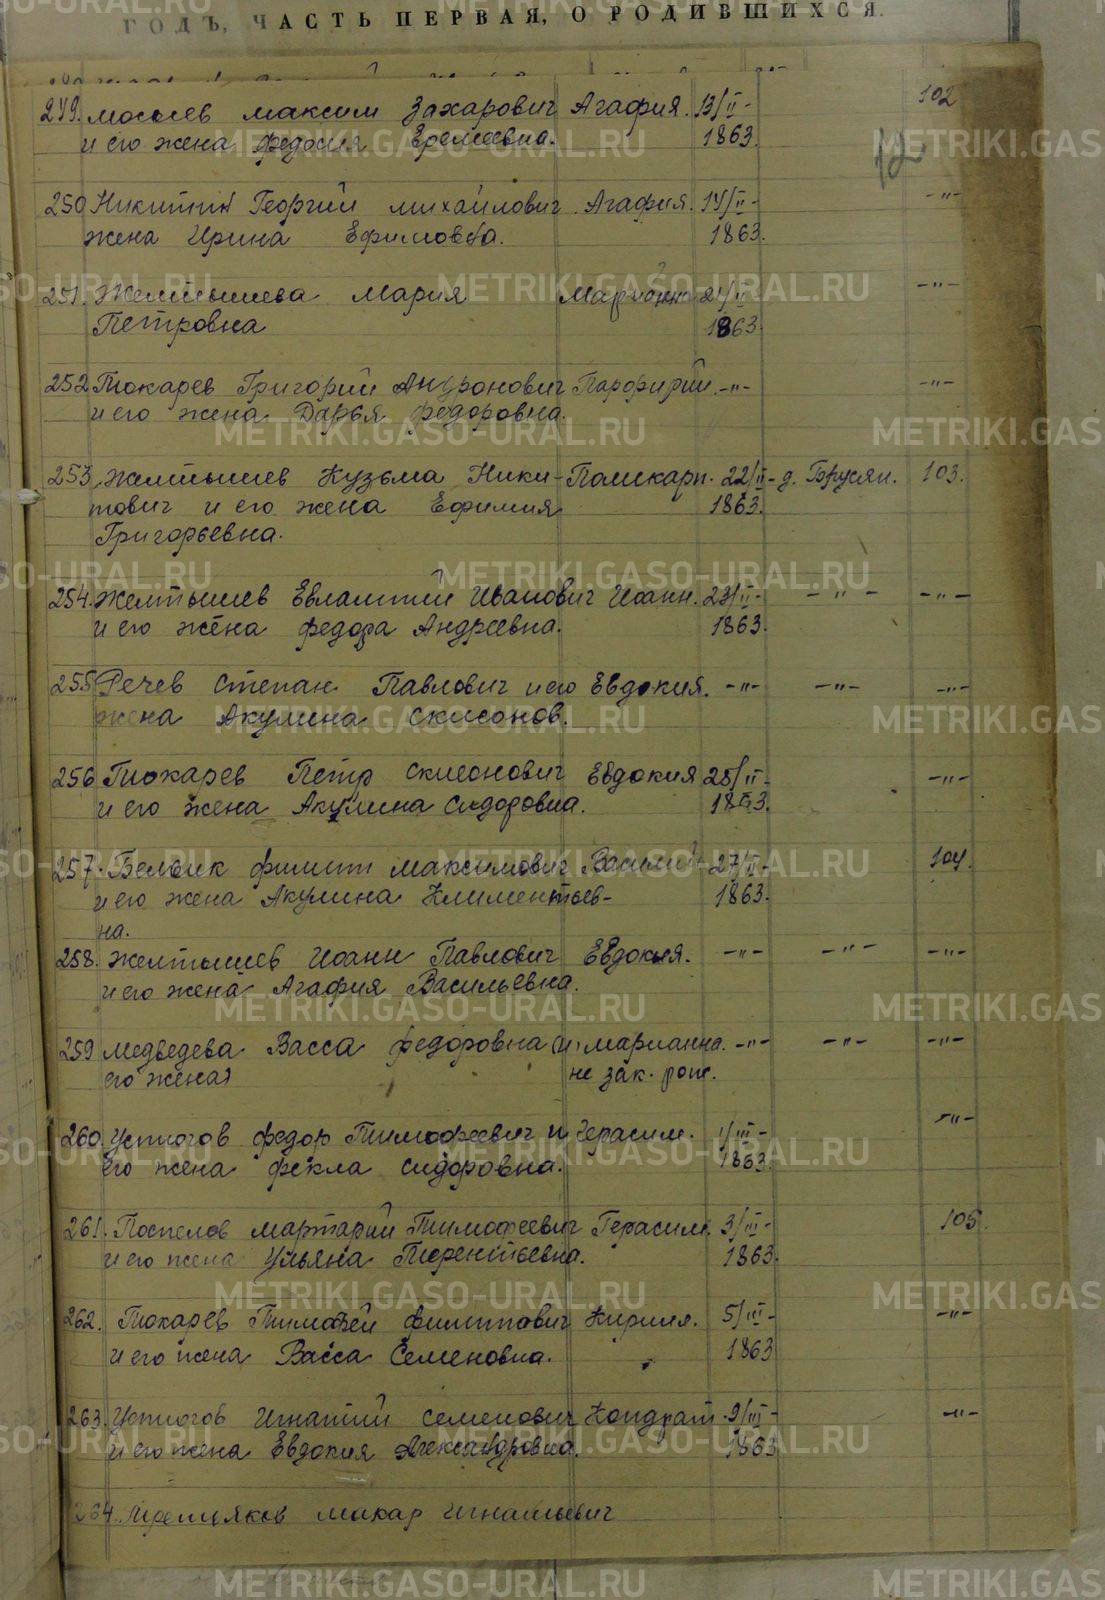 ГОДЪ, ЧАСТЬ ПЕРВАЯ, О РОДИВШИХСЯ.
249. Мосеев Максим Захарович Агафия. 13/II- 102
и его жена Федосия Еремеевна. 1863.
12
250 Никитин Георгий Михайлович Агафия. 14/II- -"-
жена Ирина Ефимовна. 1863.
251. Желтышева Мария Марианна 21/II -"-
Петровна 1863.
252 Токарев Григорий Андронович Парфирий. -"- -"-
и его жена Дарья Федоровна.
253. Желтышев Кузьма Ники- Поликарп. 22/II- д. Брусян. 103.
тович и его жена Ефимия 1863.
Григорьевна.
254. Желтышев Евлампий Иванович Иоанн. 23/II- -"- -"-
и его жена Федора Андреевна. 1863.
255 Речев Степан Павлович и его Евдокия. -"- -"- -"-
жена Акулина
256 Токарев Петр Евдокия 25/II- -"-
и его жена Акулина Сидоровна. 1863.
257. Филипп Максимович Василий 27/II- 104.
и его жена Акулина Климентьев- 1863.
на.
258. Желтышев Иоанн Павлович Евдокия. -"- -"- -"-
и его жена Агафия Васильевна.
259 Медведева Васса Федоровна (и Марианна. -"- -"- -"-
его жена) не зак. рож.
260. Устюгов Федор Тимофеевич и Герасим. 1/III- -"-
его жена Фекла Сидоровна. 1863
261. Поспелов Мартарий Тимофеевич Герасим. 3/III- 105.
и его жена Ульяна Терентьевна. 1863.
262. Токарев Тимофей Филиппович Кирилл. 5/III- -"-
и его жена Васса Семеновна. 1863
263. Устюгов Игнатий Семенович Кондрат. 9/III- -"-
и его жена Евдокия Александровна. 1863
264. Третьяков Макар Игнатьевич
METRIKI.GASO-URAL.RU